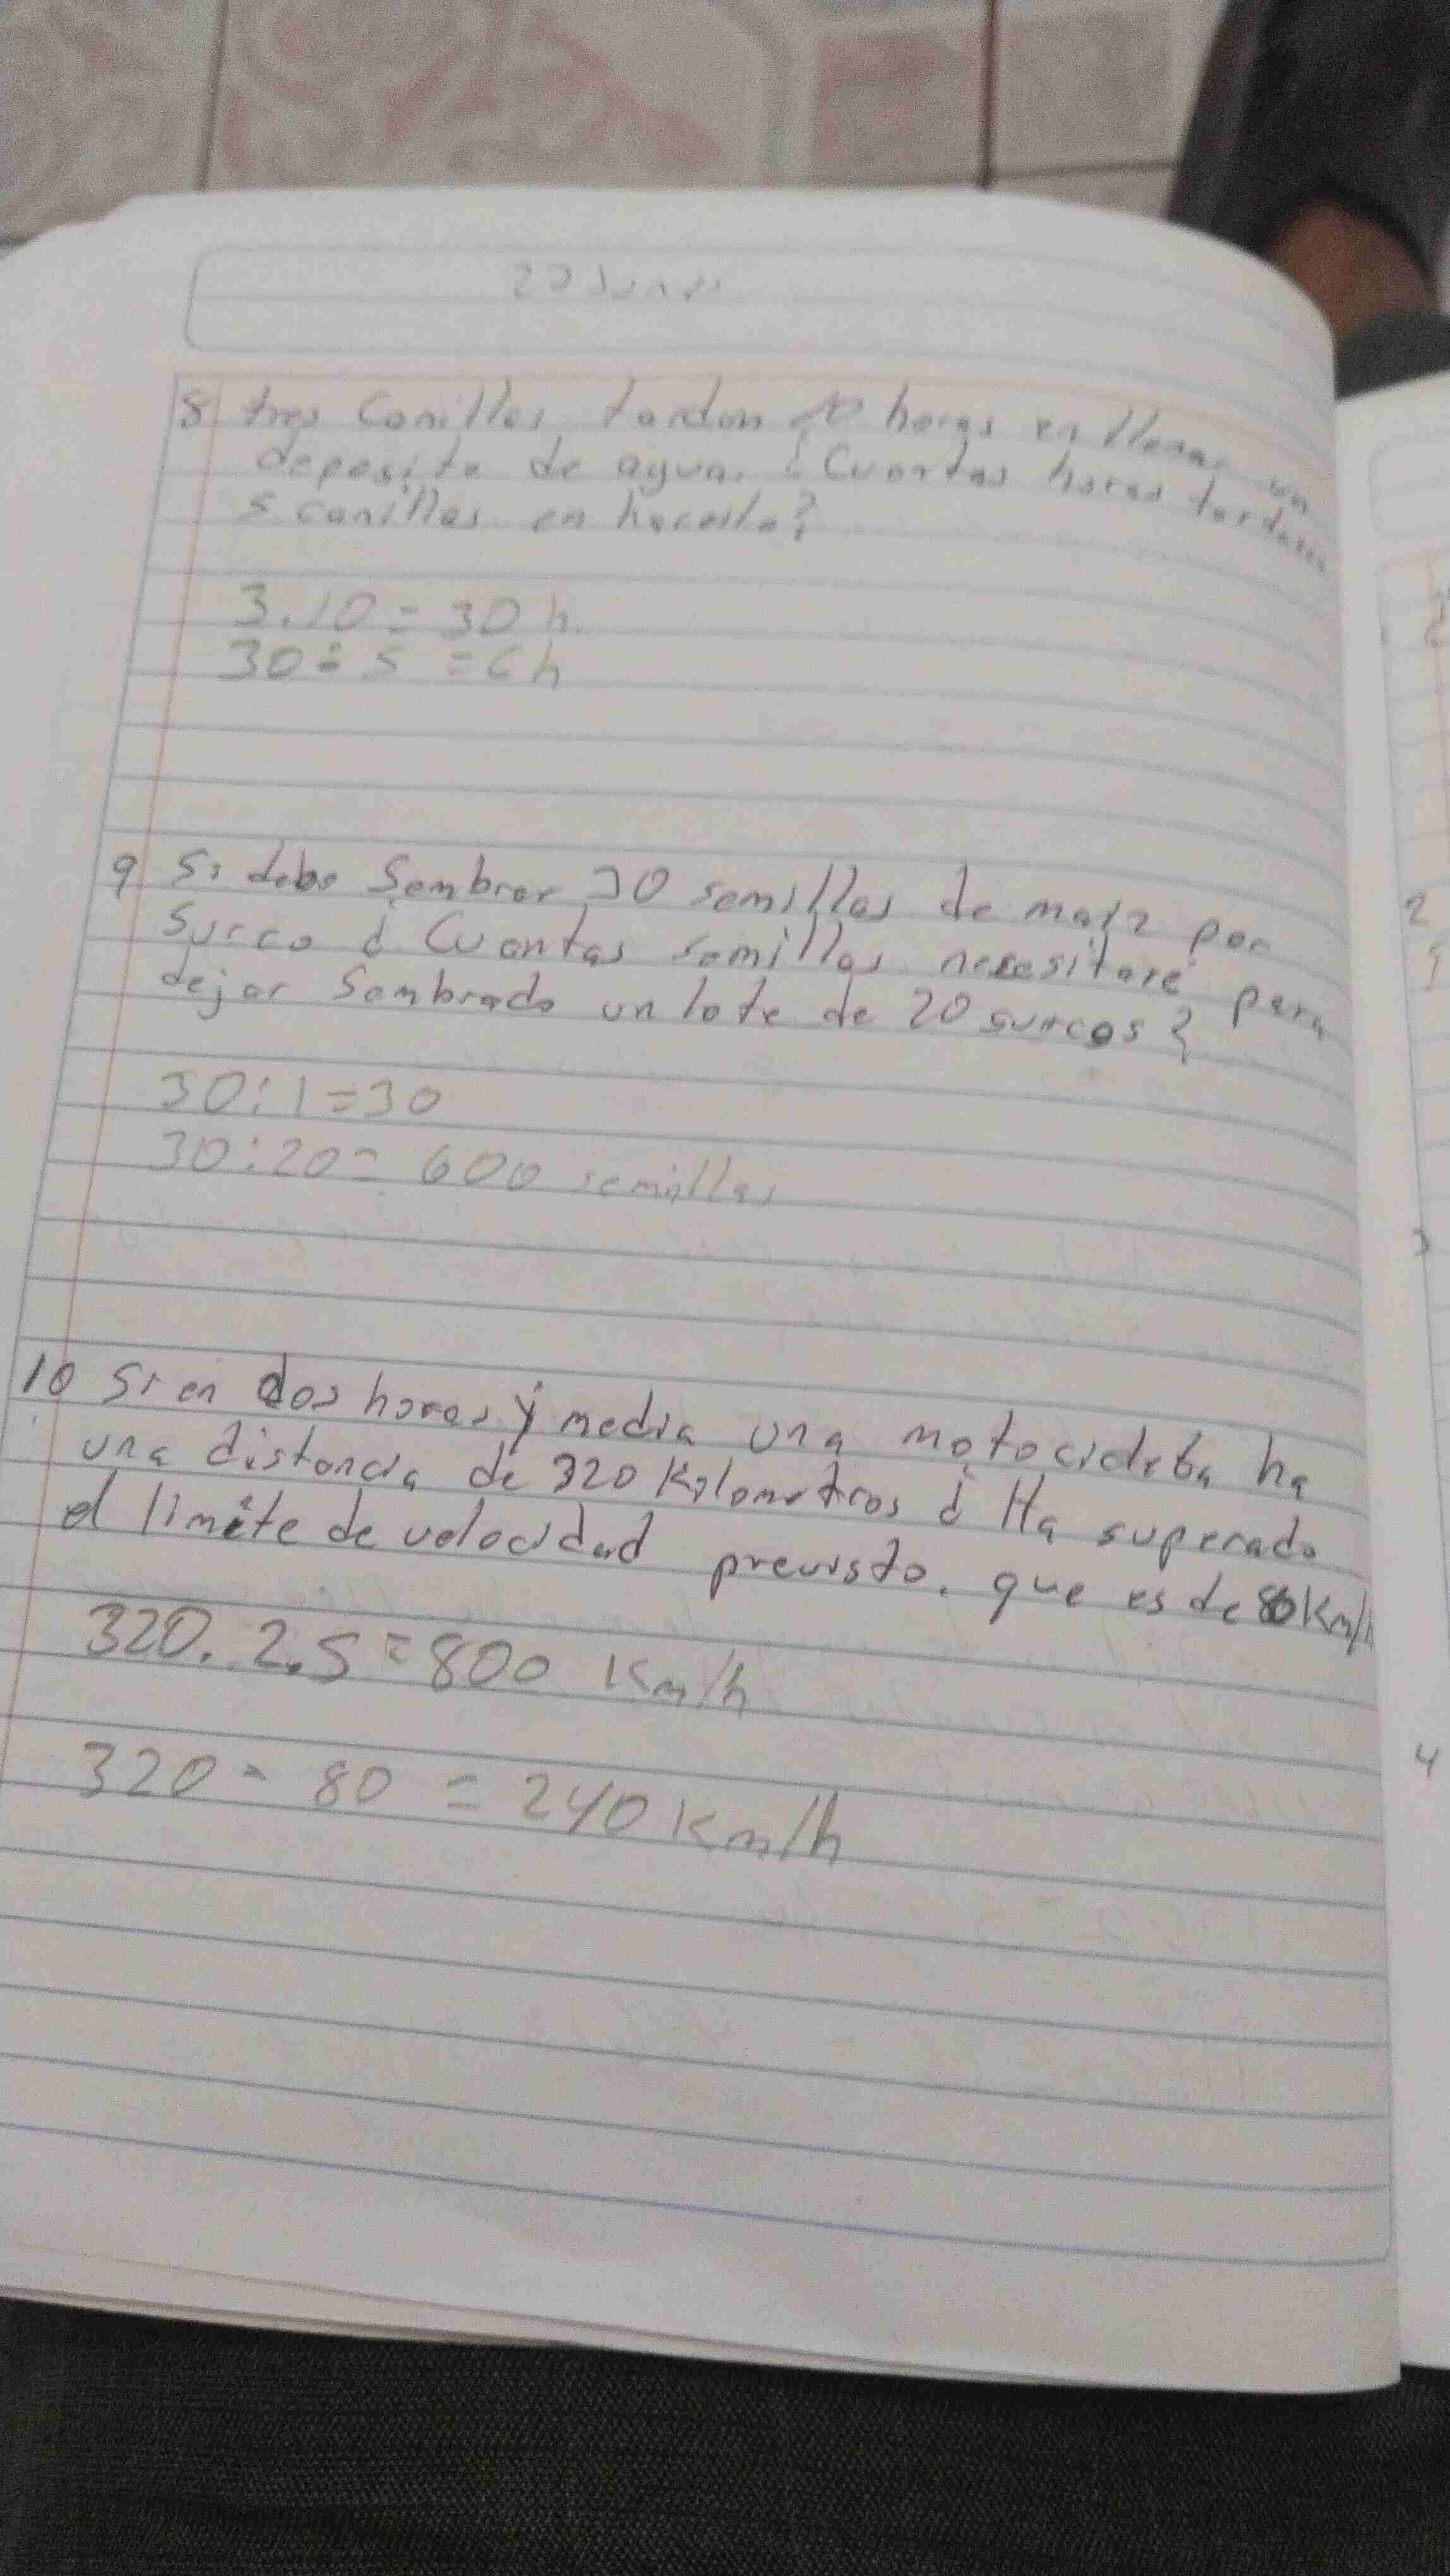 8 tres Canillas tardan 10 horas en llenar un
deposito de agua. ¿Cuantas horas tardaran
5 canillas en hacerlo?
3.10 = 30 h.
30 ÷ 5 = 6 h
9 Si debo Sembrar 30 semillas de maiz por
surco ¿Cuantas semillas necesitaré para
dejar Sembrado un lote de 20 surcos?
30:1=30
30:20= 600 semillas
10 Si en dos horas y media una motocicleta ha
una distancia de 320 Kilometros ¿Ha superado
el limite de velocidad previsto, que es de 80Km/h
320. 2.5=800 Km/h
320 - 80 = 240 Km/h
2
3
4